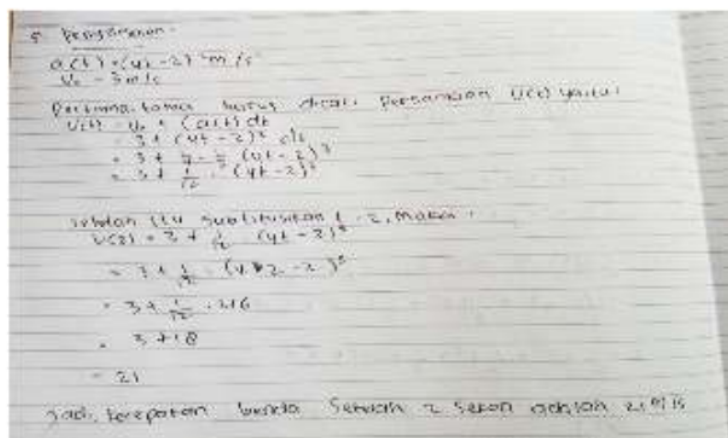 5. Penyelesaian.
a(t) = (4t - 2)² m/s
V₀ = 3 m/s
Pertama-tama harus dicari Persamaan V(t) yaitu:
V(t) = V₀ + ∫a(t) dt
= 3 + (4t - 2)² dt
= 3 + 1/4 . 1/3 (4t - 2)³
= 3 + 1/12 . (4t - 2)³
setelah itu subtitusikan t = 2, maka:
V(2) = 3 + 1/12 (4t - 2)³
= 3 + 1/12 (4.2 - 2)³
= 3 + 1/12 . 216
= 3 + 18
= 21
Jadi, kecepatan benda setelah 2 sekon adalah 21 m/s